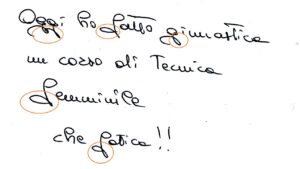 Oggi ho fatto ginnastica
un corso di Tecnica
femminile
che fatica!!